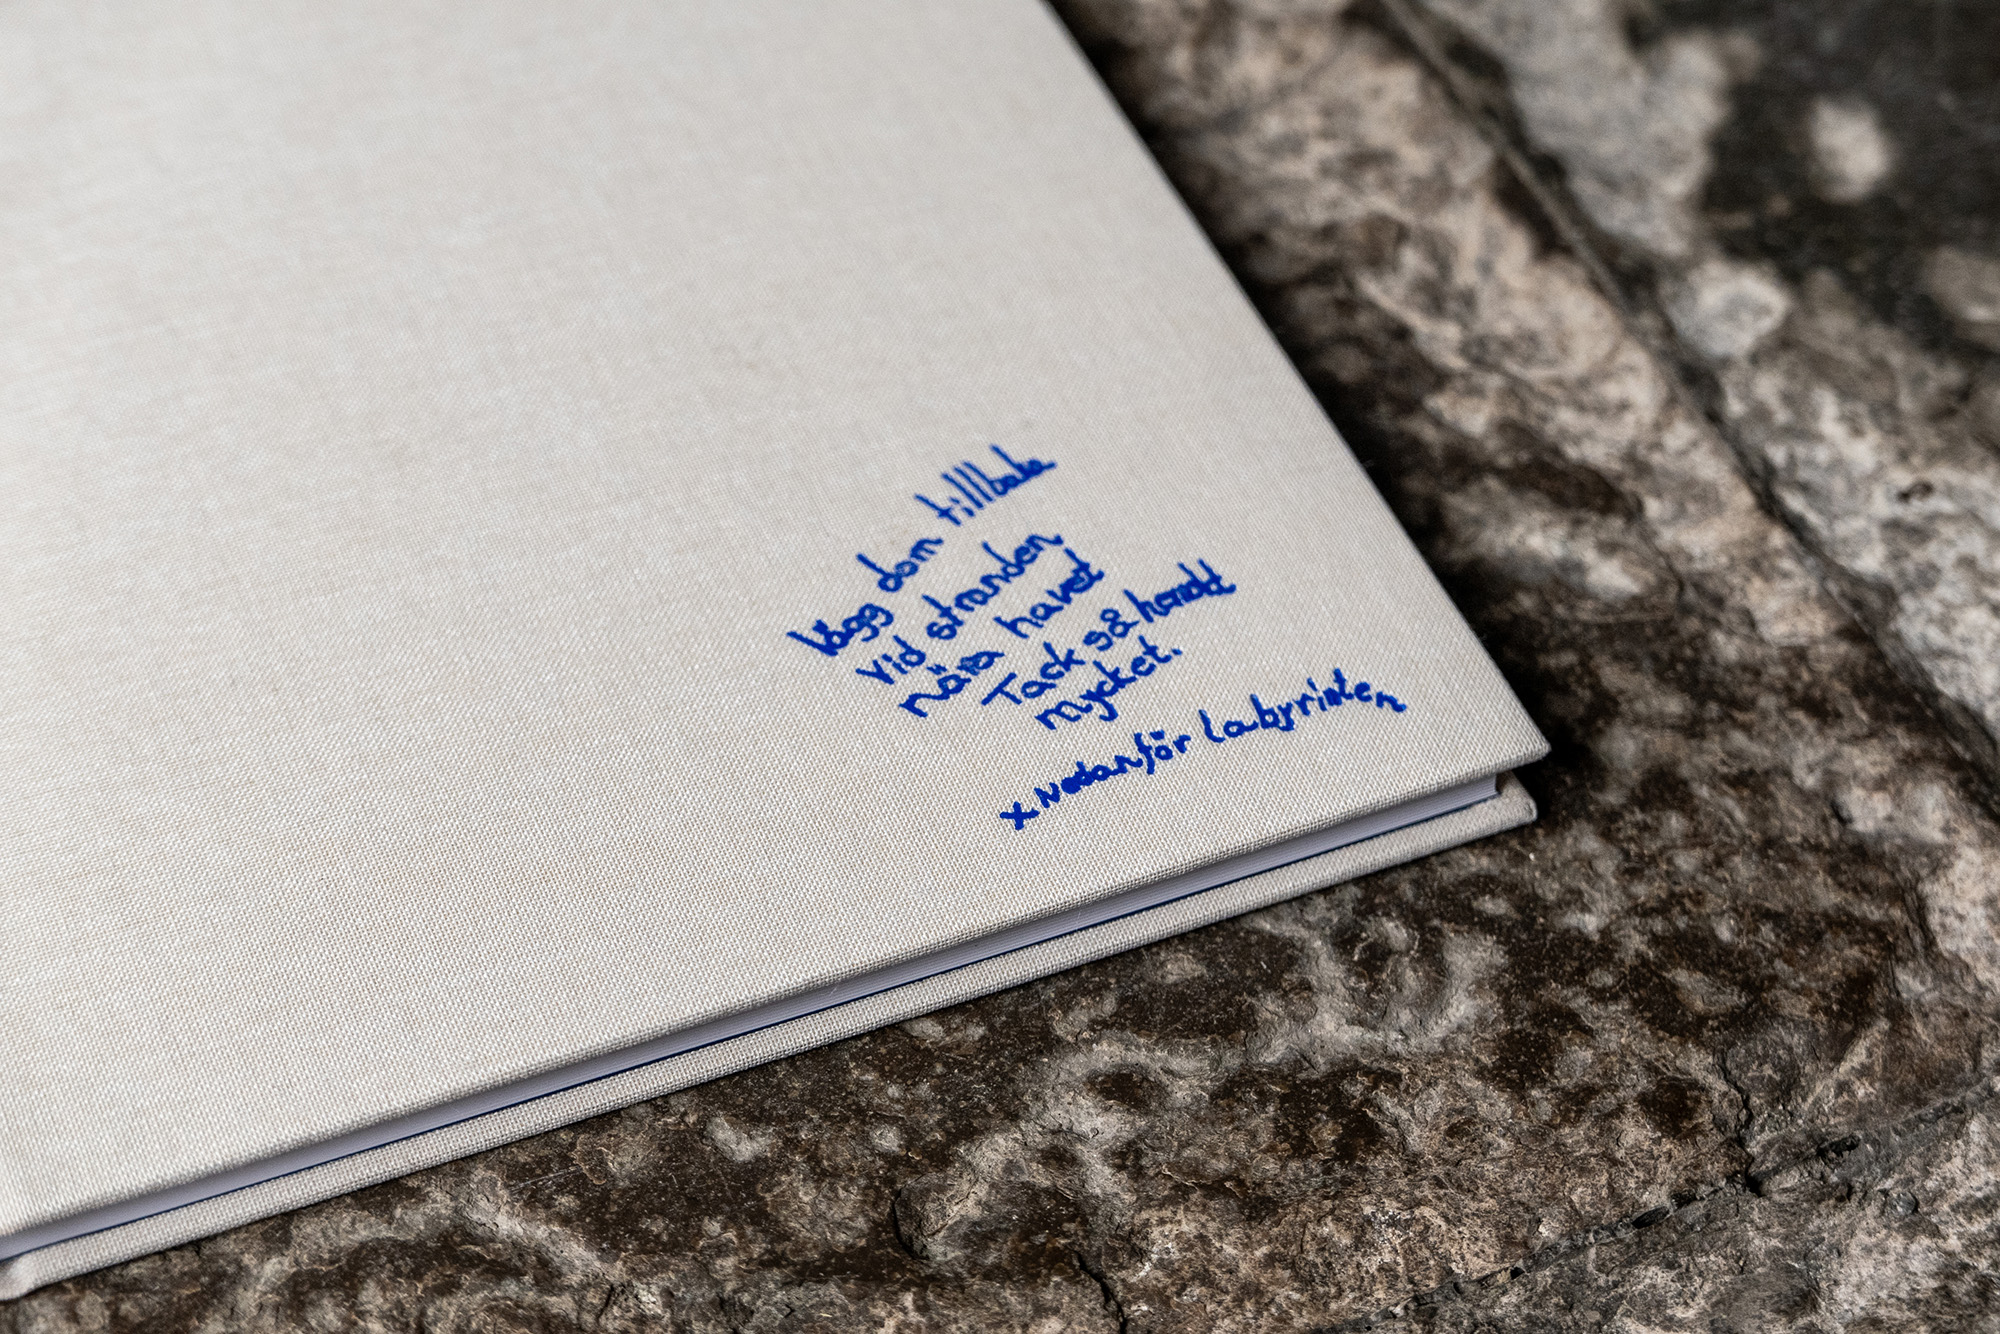 lägg dom tillbaka
vid stranden
nära havet
Tack så hemskt
mycket.
x Nedanför Labyrinten